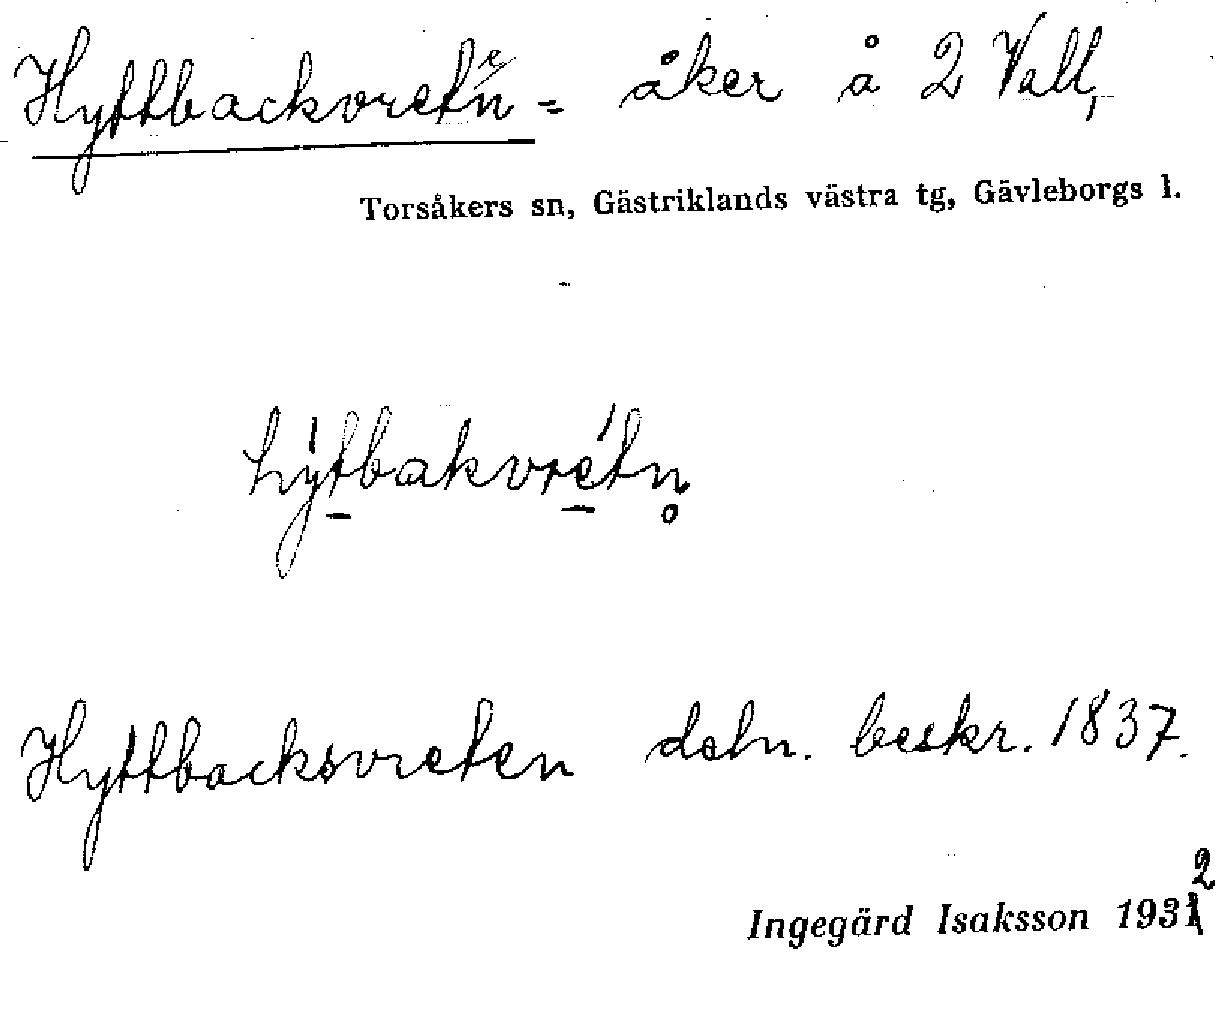 Hyttbackvreten = åker å 2 Vall,
Torsåkers sn, Gästriklands västra tg, Gävleborgs l.
hýtbakvrétn̥
Hyttbacksvreten dahn. beskr. 1837.
Ingegärd Isaksson 1932